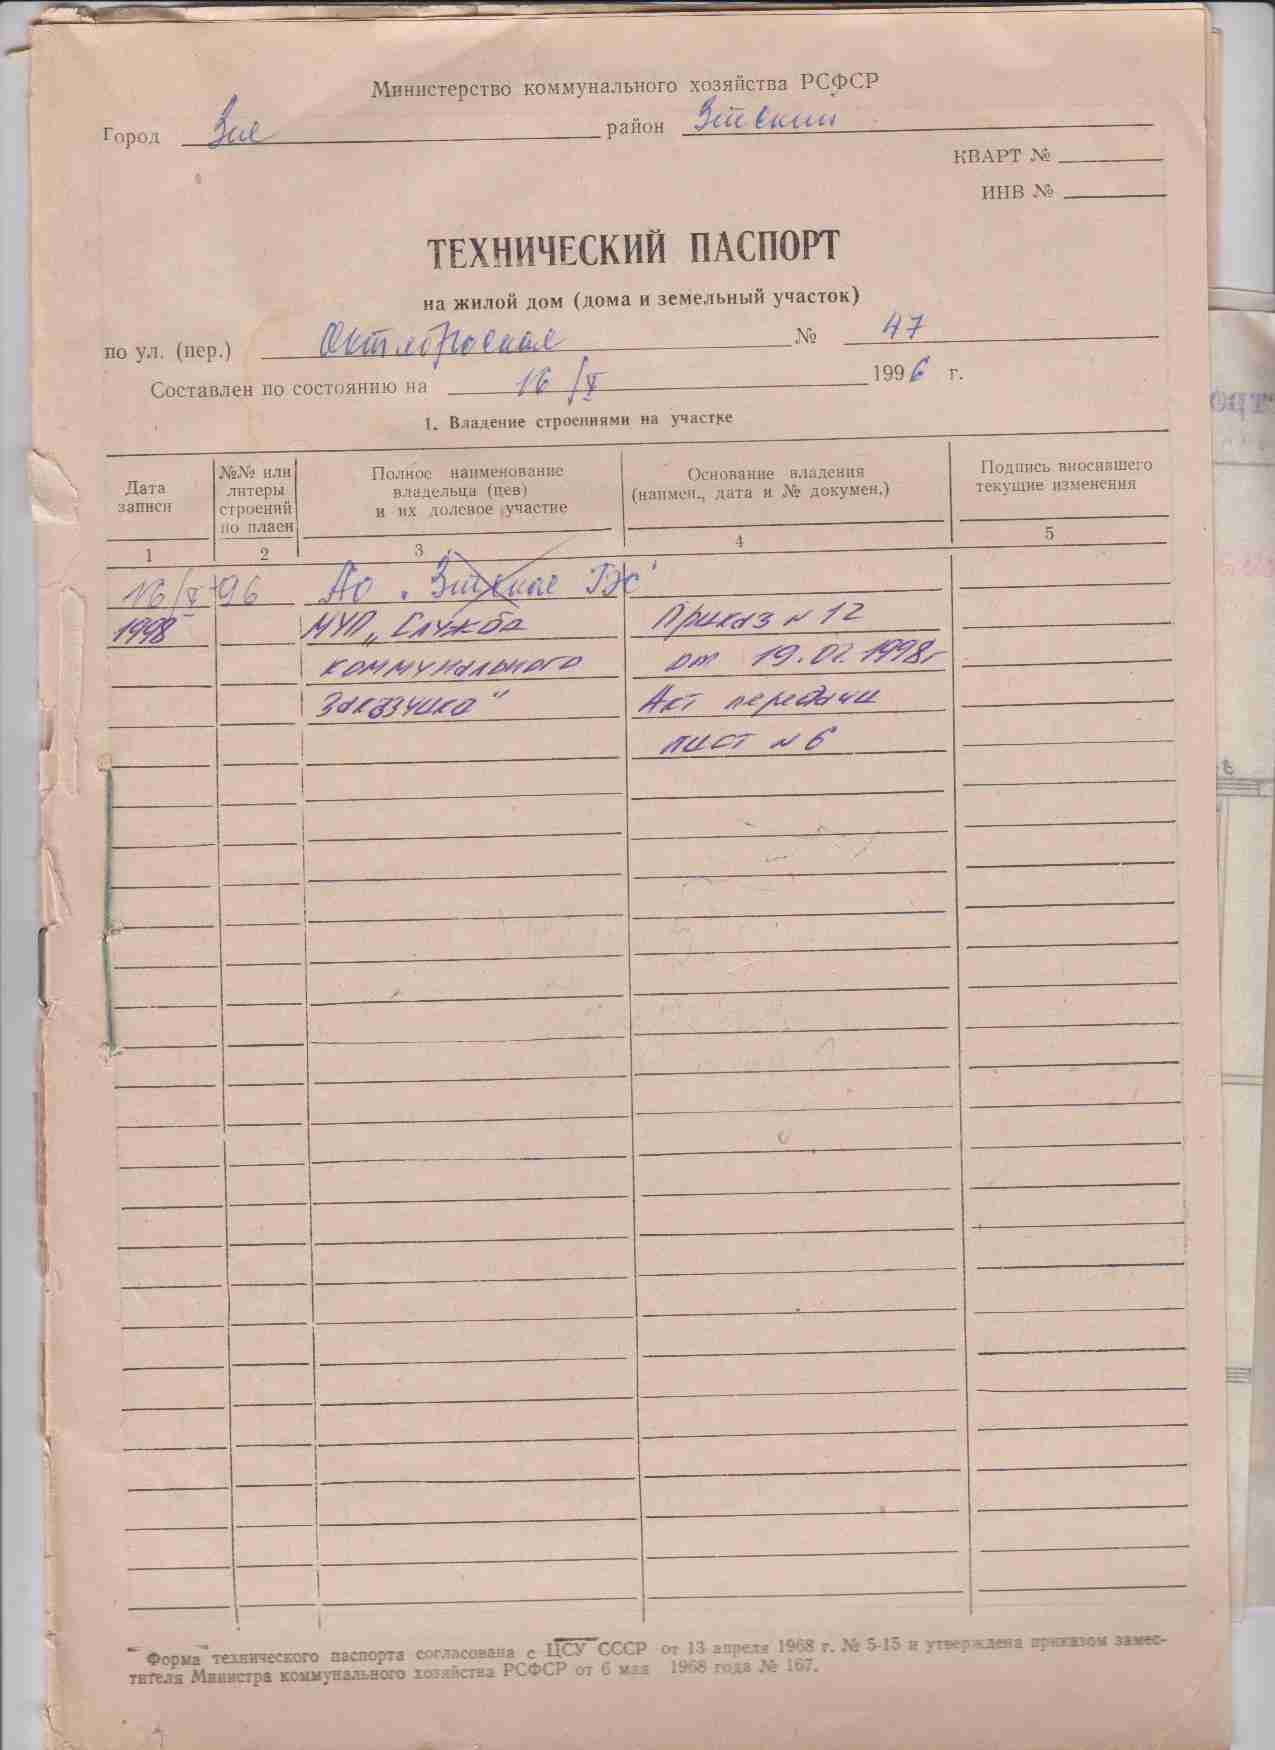 Министерство коммунального хозяйства РСФСР
Город Зея район Зейский
КВАРТ №
ИНВ №
ТЕХНИЧЕСКИЙ ПАСПОРТ
на жилой дом (дома и земельный участок)
по ул. (пер.) Октябрьская № 47
Составлен по состоянию на 16/V 1996 г.
1. Владение строениями на участке
Дата записи
№№ или литеры строений по плаен
Полное наименование владельца (цев) и их долевое участие
Основание владения (наимен., дата и № докумен.)
Подпись вносившего текущие изменения
1 2 3 4 5
16/V-96 АО "Зейская ГЭС"
1998 МУП "Служба Приказ № 12
коммунального от 19.02.1998г
Заказчика" Акт передачи
лист № 6
Форма технического паспорта согласована с ЦСУ СССР от 13 апреля 1968 г. № 5-15 и утверждена приказом замес-
тителя Министра коммунального хозяйства РСФСР от 6 мая 1968 года № 167.